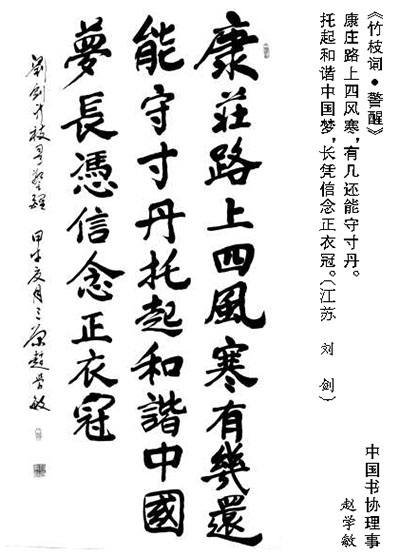 《竹枝词•警醒》
康庄路上四风寒，有几还能守寸丹。
托起和谐中国梦，长凭信念正衣冠。（江苏 刘 剑）
中国书协理事
赵学敏
康莊路上四風寒有幾還
能守寸丹托起和諧中國
夢長憑信念正衣冠
劉劍竹枝詞警醒 甲午夏月趙學敏